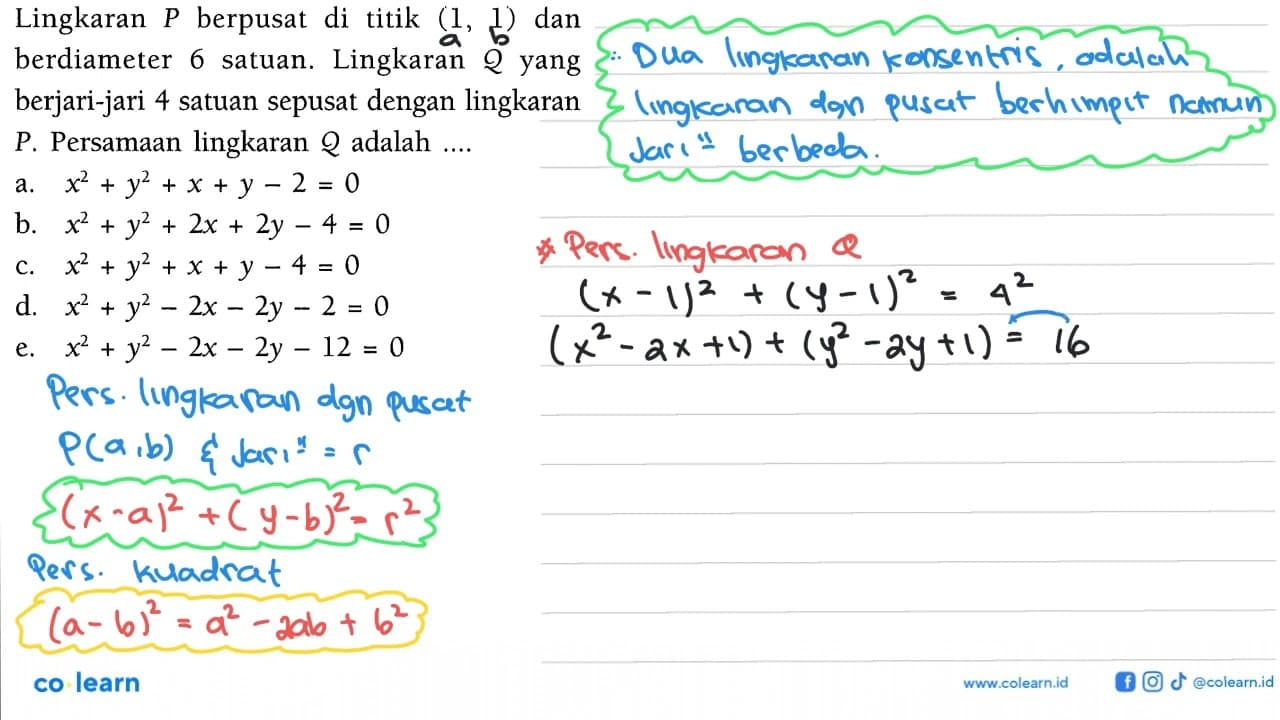 Lingkaran P berpusat di titik (1, 1) dan
a b
berdiameter 6 satuan. Lingkaran Q yang
berjari-jari 4 satuan sepusat dengan lingkaran
P. Persamaan lingkaran Q adalah ....
a. x² + y² + x + y − 2 = 0
b. x² + y² + 2x + 2y − 4 = 0
c. x² + y² + x + y − 4 = 0
d. x² + y² − 2x − 2y − 2 = 0
e. x² + y² − 2x − 2y − 12 = 0
Pers. lingkaran dgn pusat
P(a,b) & Jari" = r
(x-a)² + (y-b)² = r²
Pers. kuadrat
(a-b)² = a² - 2ab + b²
∴ Dua lingkaran konsentris, adalah
lingkaran dgn pusat berhimpit namun
Jari" berbeda.
* Pers. lingkaran Q
(x-1)² + (y-1)² = 4²
(x² - 2x + 1) + (y² - 2y + 1) = 16
co learn
www.colearn.id
@colearn.id